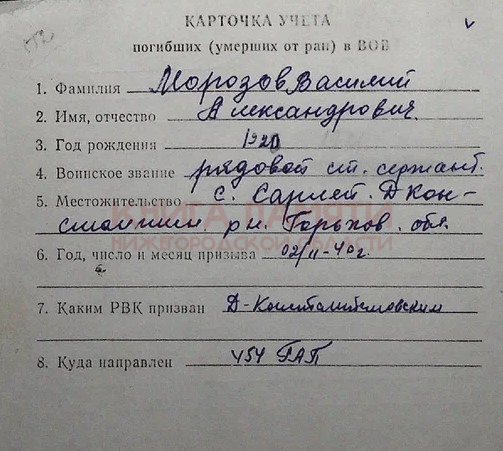 КАРТОЧКА УЧЕТА
погибших (умерших от ран) в ВОВ
1. Фамилия Морозов Василий
2. Имя, отчество Александрович.
3. Год рождения 1920
4. Воинское звание рядовой ст. сержант.
5. Местожительство с. Сарлей. Д Кон-
стантин р н. Горьков. обл.
КНИГА ПАМЯТИ
НИЖЕГОРОДСКОЙ ОБЛАСТИ
6. Год, число и месяц призыва 02/II-40 г.
7. Каким РВК призван Д-Константиновским
8. Куда направлен 454 ГАП